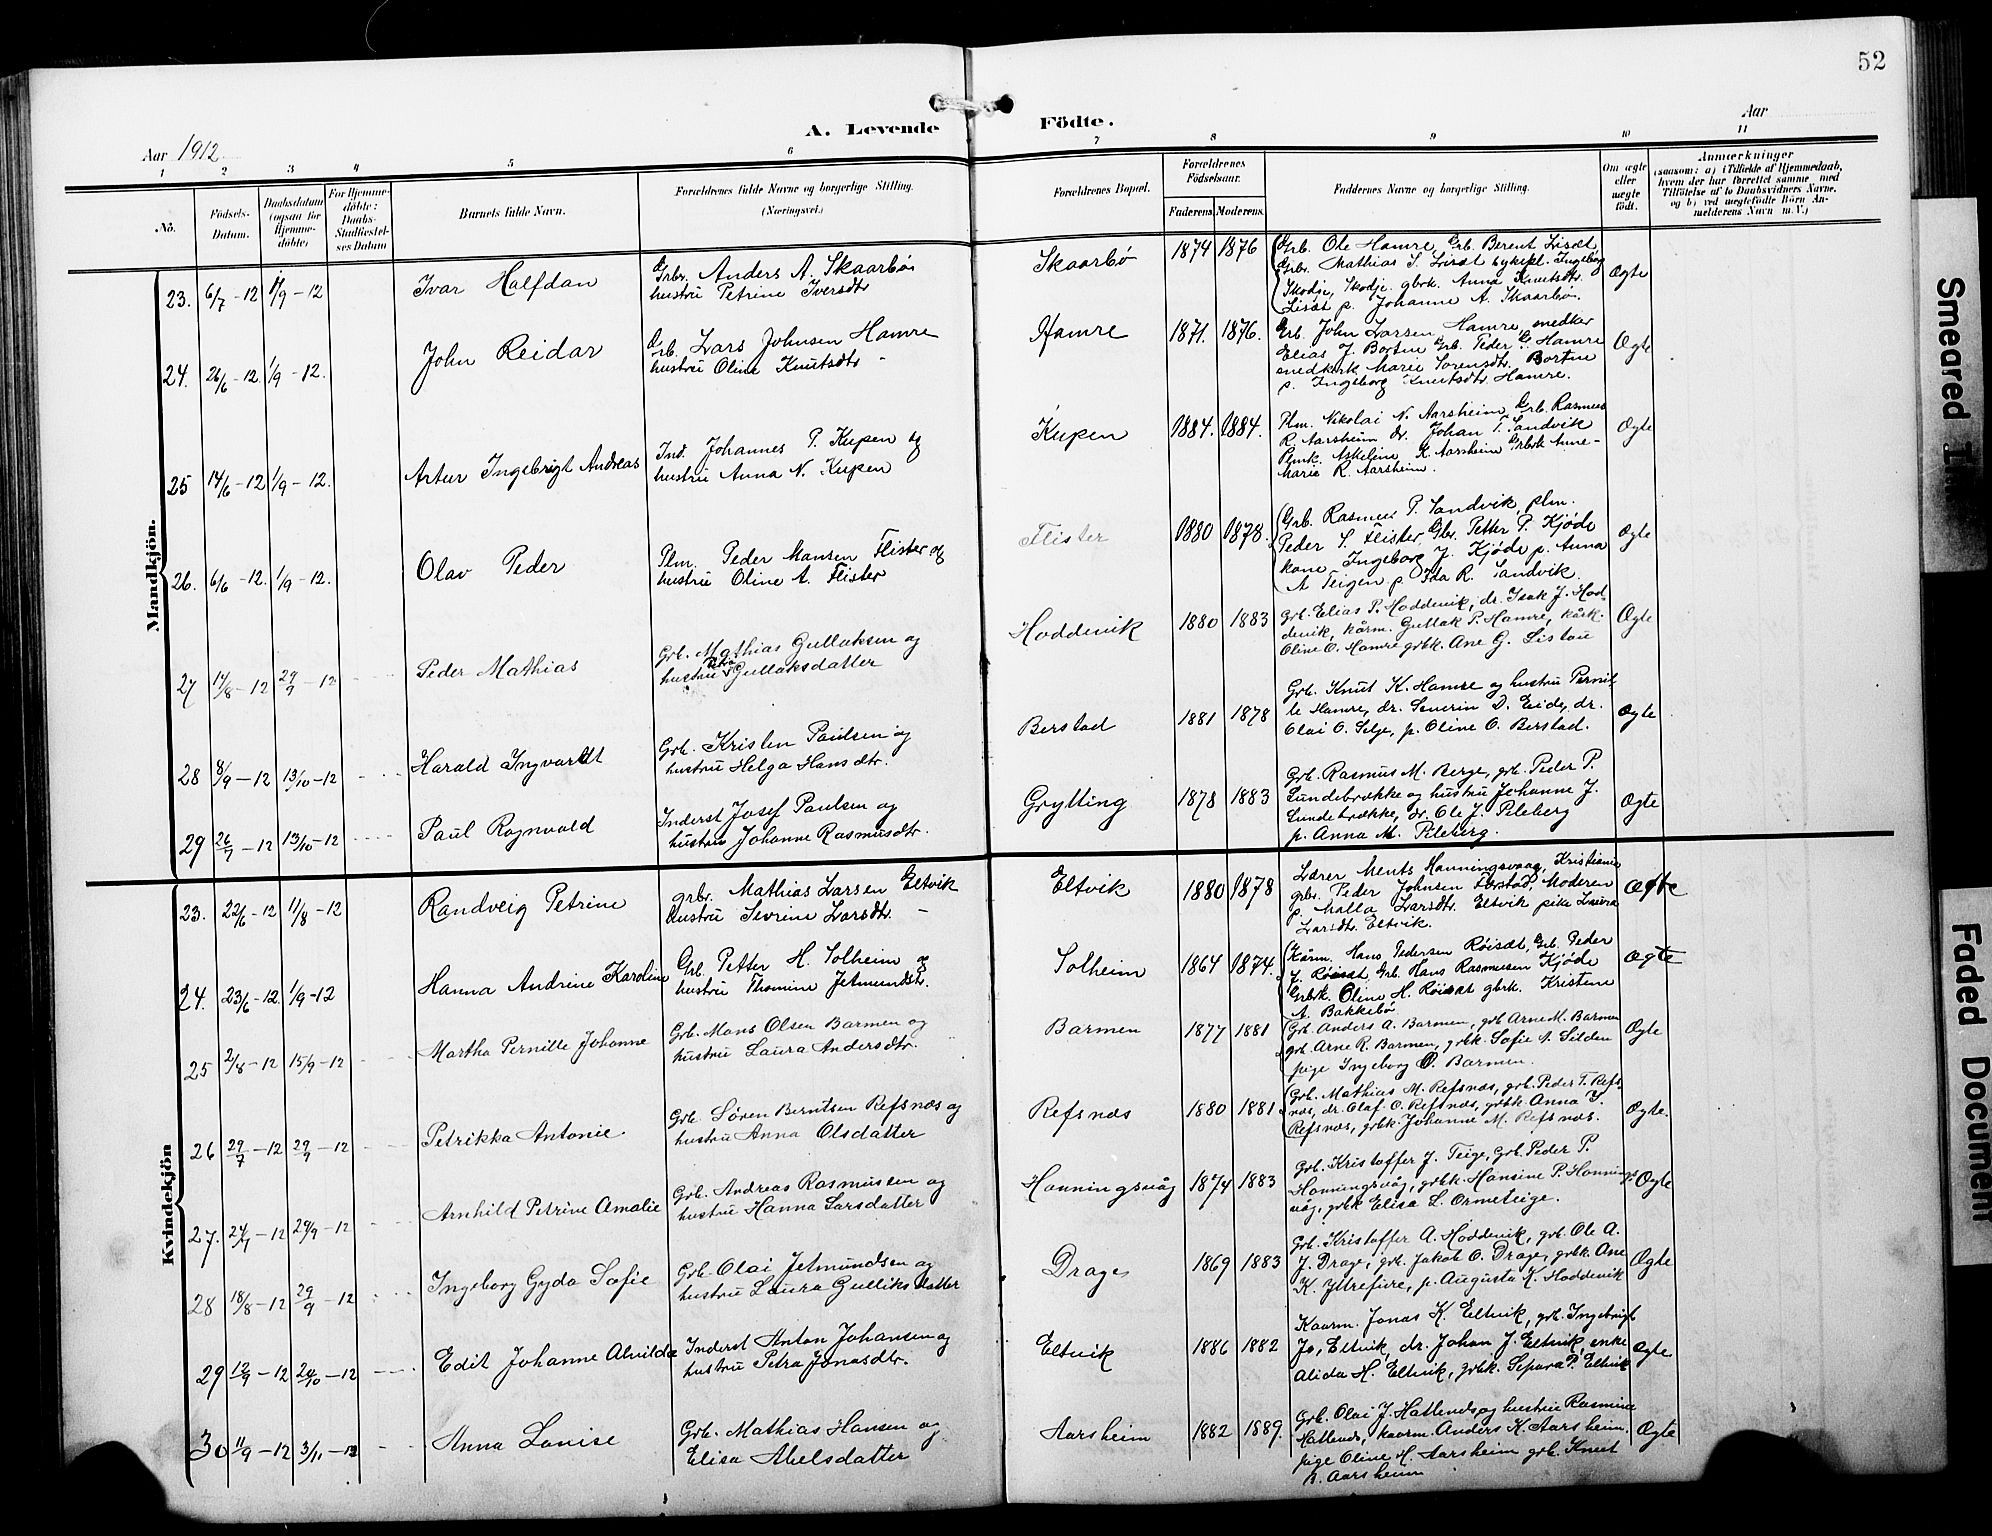 52
A. Levende Födte.
Aar 1912
Aar
1 2 3 4 5 6 7 8 9 10 11
No.
Födsels-Datum.
Daabsdatum (ogsaa for Hjemme-döbte)
For Hjemme-döbte: Daabs-Stadfæstel-ses Datum
Barnets fulde Navn.
Forældrenes fulde Navne og borgerlige Stilling. (Næringsvei.)
Forældrenes Bopæl.
Forældrenes Födselsaar.
Faderens Moderens.
Faddernes Navne og borgerlige Stilling.
Om ægte eller uægte født.
Anmærkninger
(saasom: a) i Tilfælde af Hjemmedaab, hvem der har forrettet samme med Tilföielse af to Daabsvidners Navne, og b) ved uægtefödte Börn An-melderens Navn m. V.)
Mandkjön.
23. 6/7-12 1/9-12 Ivar Halfdan Grbr. Anders A. Skaarbø hustru Petrine Iversdtr Skaarbø 1874 1876 Grb. Ole Hamre, Grb. Berent Lisæt
Grbr. Mathias S. Lisæt Ingeborg
Skodje, Skodje. gbrk. Anna Knutsdtr.
Lisæt p. Johanne A. Skaarbø. Ægte
24. 26/6-12. 1/9-12. John Reidar Grb. Lars Johnsen Hamre hustru Oline Knutsdtr Hamre 1871. 1876. Grb. John Larsen Hamre, snedker
Elias J. Bortne Grb. Peder G. Hamre
snedkerk Marie Sorensdtr. Bortne
p. Ingeborg Knutsdtr. Hamre. Ægte
25 14/6-12 1/9-12. Artur Ingebrigt Andreas Ind. Johannes P. Kupen og hustru Anna N. Kupen Kupen 1884. 1884. Plm. Nikolai N. Aarsheim, Grb. Rasmus
R. Aarsheim dr. Johan T. Sandvik
Plmk. Askeline K. Aarsheim Grbrk Anne-
Marie R. Aarsheim. Ægte
26. 6/6-12. 1/9-12. Olav Peder Plm. Peder Monsen Flister og hustru Oline A. Flister Flister 1880 1878. Grb. Rasmus P. Sandvik, plm.
Peder S. Flister, Gbr. Petter P. Kjøde
kone Ingeborg J. Kjøde p. Anna
A Teigen p. Ida R. Sandvik. Ægte
27 14/8-12 29/9-12 Peder Mathias Grb. Mathias Gullaksen og hustru Petra Gullaksdatter Hoddevik 1880 1883 Grb. Elias P. Hoddevik, dr. Isak J. Hod-
devik, kårm. Gullak P. Hamre, kårk.
Oline O. Hamre grbk. Ane G. Listau Ægte
28 8/9-12 13/10-12 Harald Ingvardt Grb. Kristen Paulsen og hustru Helga Hansdtr. Berstad 1881 1878 Grb. Knut K. Hamre og hustru Pernil-
le Hamre, dr. Severin D. Eide, dr.
Olai O. Selje, p. Oline O. Berstad. Ægte
29 26/7-12 13/10-12 Paul Ragnvald Inderst Josef Paulsen og hustru Johanne Rasmusdtr. Grytting 1878 1883 Grb. Rasmus M. Berge, grb. Peder P.
Sundebrække og hustru Johanne J.
Sundebrække, dr. Ole J. Pileberg
p. Anna M. Pileberg. Ægte
Kvindekjön
23. 22/6-12 11/8-12 Randveig Petrine grbr. Mathias Larsen Eltvik hustru Sevrine Larsdtr. Eltvik 1880 1878 Lærer Ments Honningsvaag, Kristiane
grbr. Peder Johnsen Flistad, Moderen
p. Malla Larsdtr. Eltvik pike Laura
Larsdtr. Eltvik. Ægte
24. 23/6-12. 1/9-12 Hanna Andrine Karoline Grb. Petter H. Solheim og hustru Thomine Jetmundstr. Solheim 1864 1874. Kårm. Hans Pedersen Røisæt, Grb. Peder
J. Røisæt Grb. Hans Rasmusen Kjøde
Grbrk. Oline H. Røisæt gbrk. Kristene
A. Bakkebø Ægte
25 2/8-12 15/9-12 Martha Pernille Johanne Grb. Mons Olsen Barmen og hustru Laura Andersdtr. Barmen 1877 1881 Grb. Anders A. Barmen, grb Arne M. Barmen
grb. Arne R. Barmen, grbk. Sofie A. Silden
pige Ingeborg O. Barmen. Ægte
26 29/7-12 29/9-12 Petrikka Antonie Grb. Søren Berntsen Refsnæs og hustru Anna Olsdatter Refsnæs 1880 1881 Grb. Mathias M. Refsnæs, grb. Peder T. Refs-
næs, dr. Olaf O. Refsnæs, grbk Anna Y.
Refsnæs, grbk. Johanne M. Refsnæs. Ægte.
27. 24/7-12 29/9-12 Arnhild Petrine Amalie Grb. Andreas Rasmussen og hustru Hanna Larsdatter Honningsvåg 1874 1883 Grb. Kristoffer J. Teige, grb. Peder P.
Honningsvåg, grbk. Hansine P. Honnings-
våg, grbk Elisa L. Ormeteige. Ægte
28 18/8-12 29/9-12 Ingeborg Gyda Sofie Grb. Olai Jetmundsen og hustru Laura Gulliksdatter Drage 1869 1883 Grb. Kristoffer A. Hoddevik, grb. Ole A.
J. Drage, grb. Jakob O. Drage, grbk. Ane
K. Ytrefure, p. Augusta K. Hoddevik Ægte
29 12/9-12 20/10-12 Edit Johanne Alvilde Inderst Anton Johansen og hustru Petra Jonasdtr. Eltvik 1886 1882 Kaarm. Jonas K. Eltvik, grb. Ingebrigt
Jo. Eltvik, dr. Johan J. Eltvik, enke
Alida H. Eltvik, grbk. Sepura P. Eltvik Ægte
30 11/9-12 3/11-12 Anna Lovise Grb. Mathias Hansen og Elisa Abelsdatter Aarsheim 1882 1889. Grb. Olai J. Hatlenes og hustru Rasmine
Hatlenes, kaarm. Anders K. Aarsheim.
pige Oline H. Aarsheim grb. Knut
A. Aarsheim Ægte
Smeared Ink
Faded Document